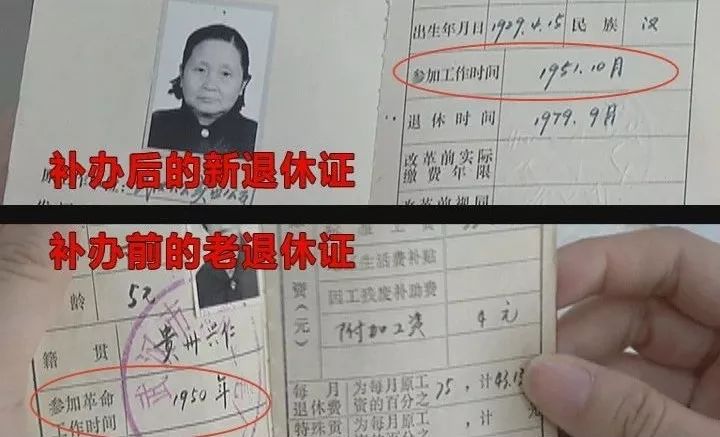 出生年月日 1929.4.15 民族 汉
参加工作时间 1951.10月
退休时间 1979.9月
改革前实际
缴费年限
改革前视同
补办后的新退休证
补办前的老退休证
龄 52
籍贯 贵州兴仁
参加革命
工作时间 1950年
资
(元)
生活费补贴
因工残废补助费
附加工资 4元
每月
退休费
为每月原工
资的百分之
75,计
特殊贡
为每月原工
资的百分之
计 元